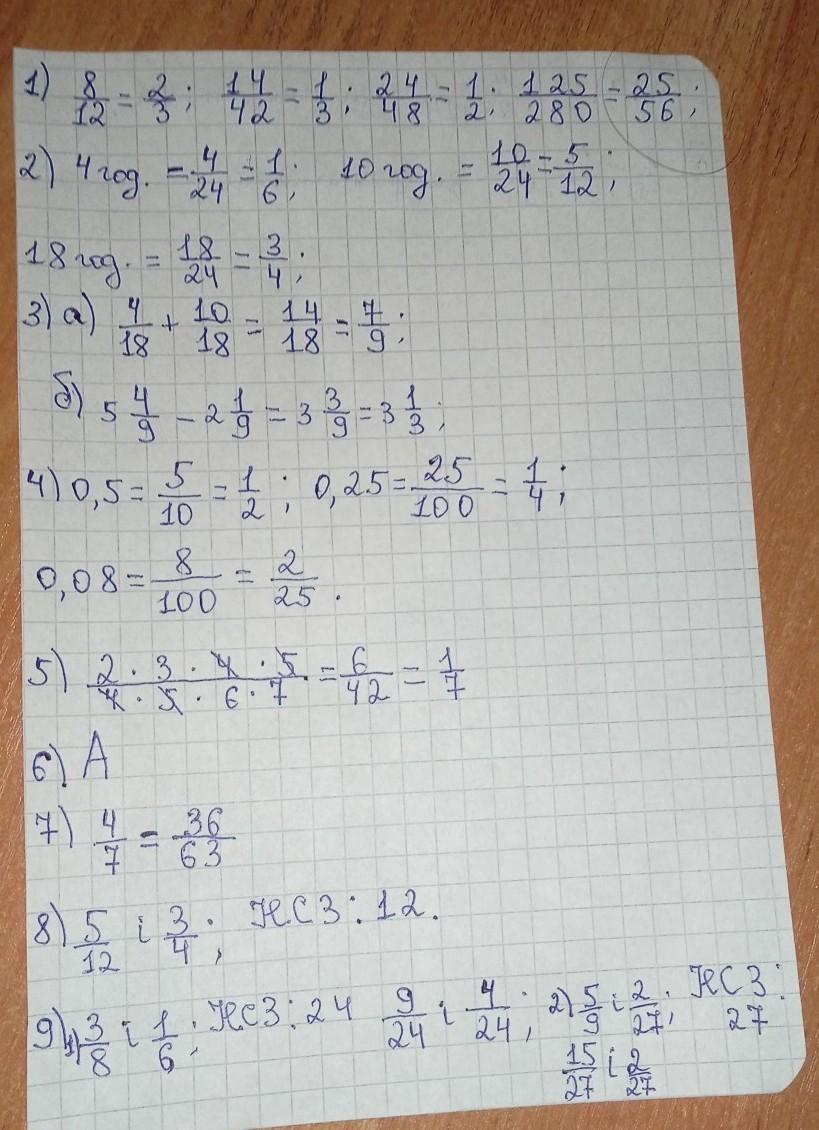 1) 8/12 = 2/3; 14/42 = 1/3; 24/48 = 1/2; 125/280 = 25/56;
2) 4 год. = 4/24 = 1/6; 10 год. = 10/24 = 5/12;
18 год. = 18/24 = 3/4;
3) а) 4/18 + 10/18 = 14/18 = 7/9;
б) 5 4/9 - 2 1/9 = 3 3/9 = 3 1/3;
4) 0,5 = 5/10 = 1/2; 0,25 = 25/100 = 1/4;
0,08 = 8/100 = 2/25.
5) 2 · 3 · 4 · 5 / 4 · 5 · 6 · 7 = 6/42 = 1/7
6) А
7) 4/7 = 36/63
8) 5/12 і 3/4; НСЗ: 12.
9) 1) 3/8 і 1/6; НСЗ: 24 9/24 і 4/24; 2) 5/9 і 2/27; НСЗ: 27
15/27 і 2/27